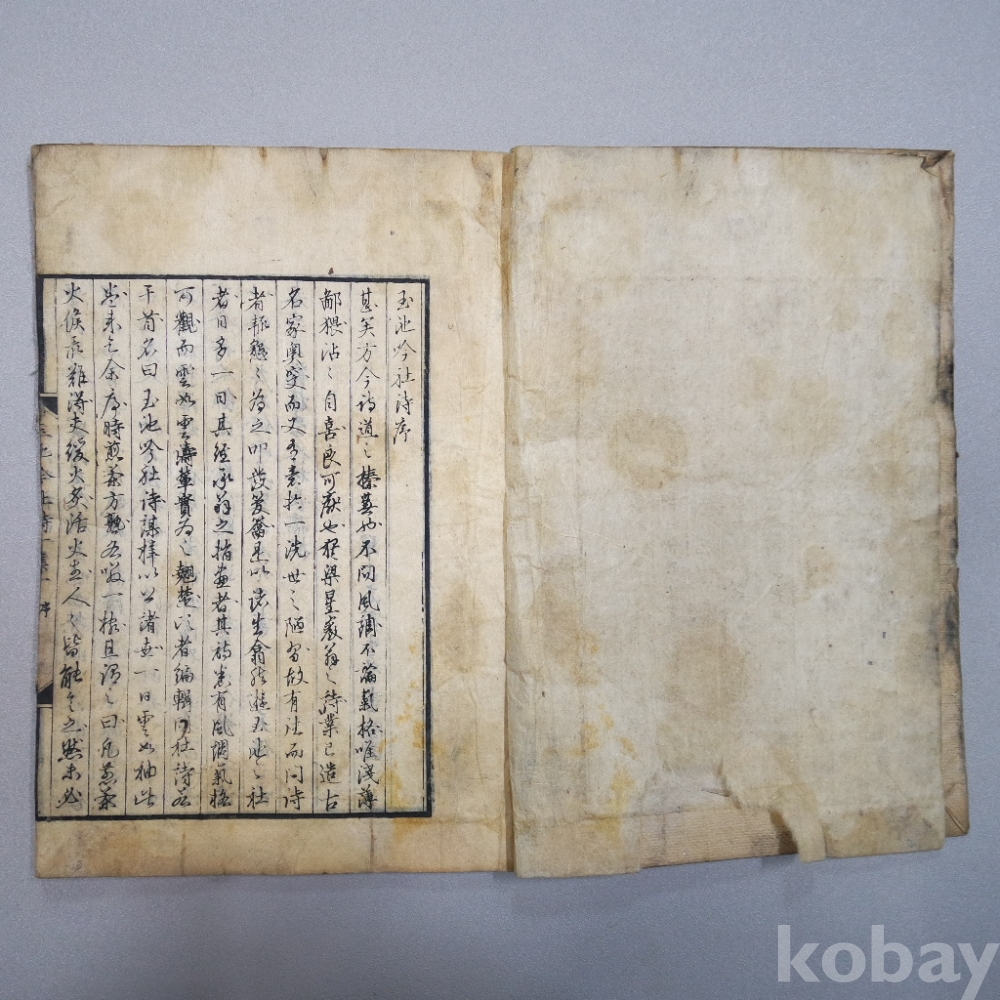 玉池吟社詩序
甚矣方今詩道之榛蕪也不問風調不論氣格唯淺薄
鄙猥沾〻自喜良可厭也猴與星巖翁之詩業已造古
名家奧窔而又有志於一洗世之陋習故有注而問詩
者輒懇〻為之叩發是以諸生翕然遊玉池之社
者日多一日其經承翁之指畫者其詩悉有風調氣格
可觀而雲如雲濤華實為之翹楚頃者編輯同社詩若
干首名曰玉池吟社詩謀梓以公諸世一日雲如袖此
卷來乞余序時煎茶方熟各啜一椀且謂之曰凡煎茶
火候最難得文緩火家活火世人人皆能言之然未必
玉池吟社詩一集 序
kobay